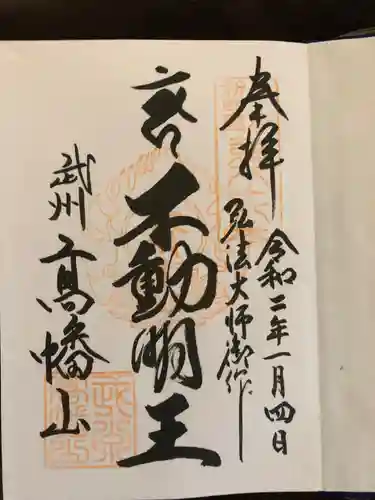 奉拝
令和二年一月四日
弘法大師御作
不動明王
武州
高幡山